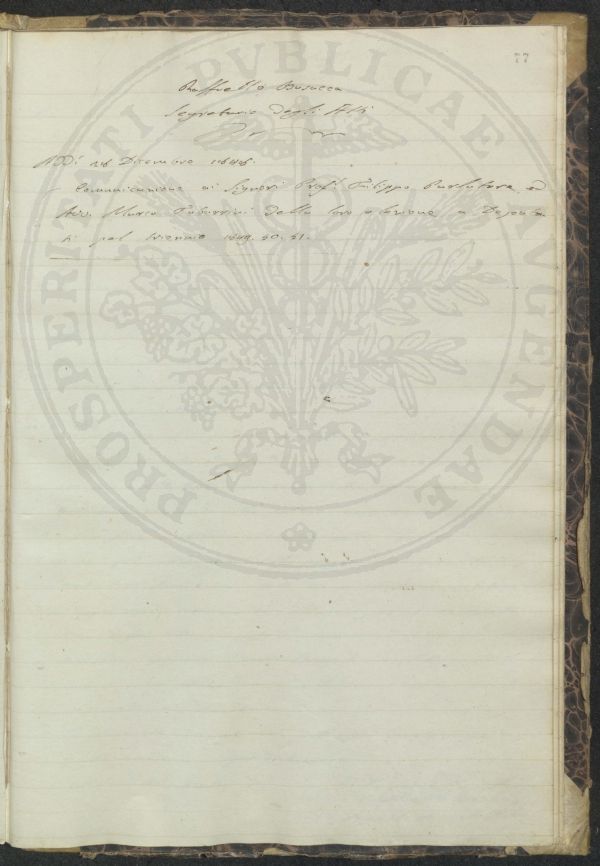 77
Raffaello Busacca
Segretario degli Atti
PROSPERITATI PUBLICAE AUGENDAE
A Dì Dicembre
Comunicazione ai Signori Prof. Filippo Parlatore ed
Avv. Marco Tabarrini della loro elezione a Deputa
ti pel triennio 1849. 50. 51.